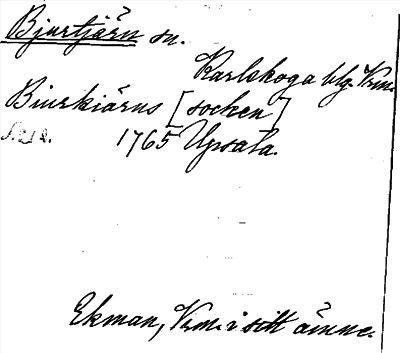 Bjurtjärn sn.
Karlskoga blg. Vrm.
Biurkiärns [socken]
1765 Upsala.
Ekman, Vrm. i sitt ämne.